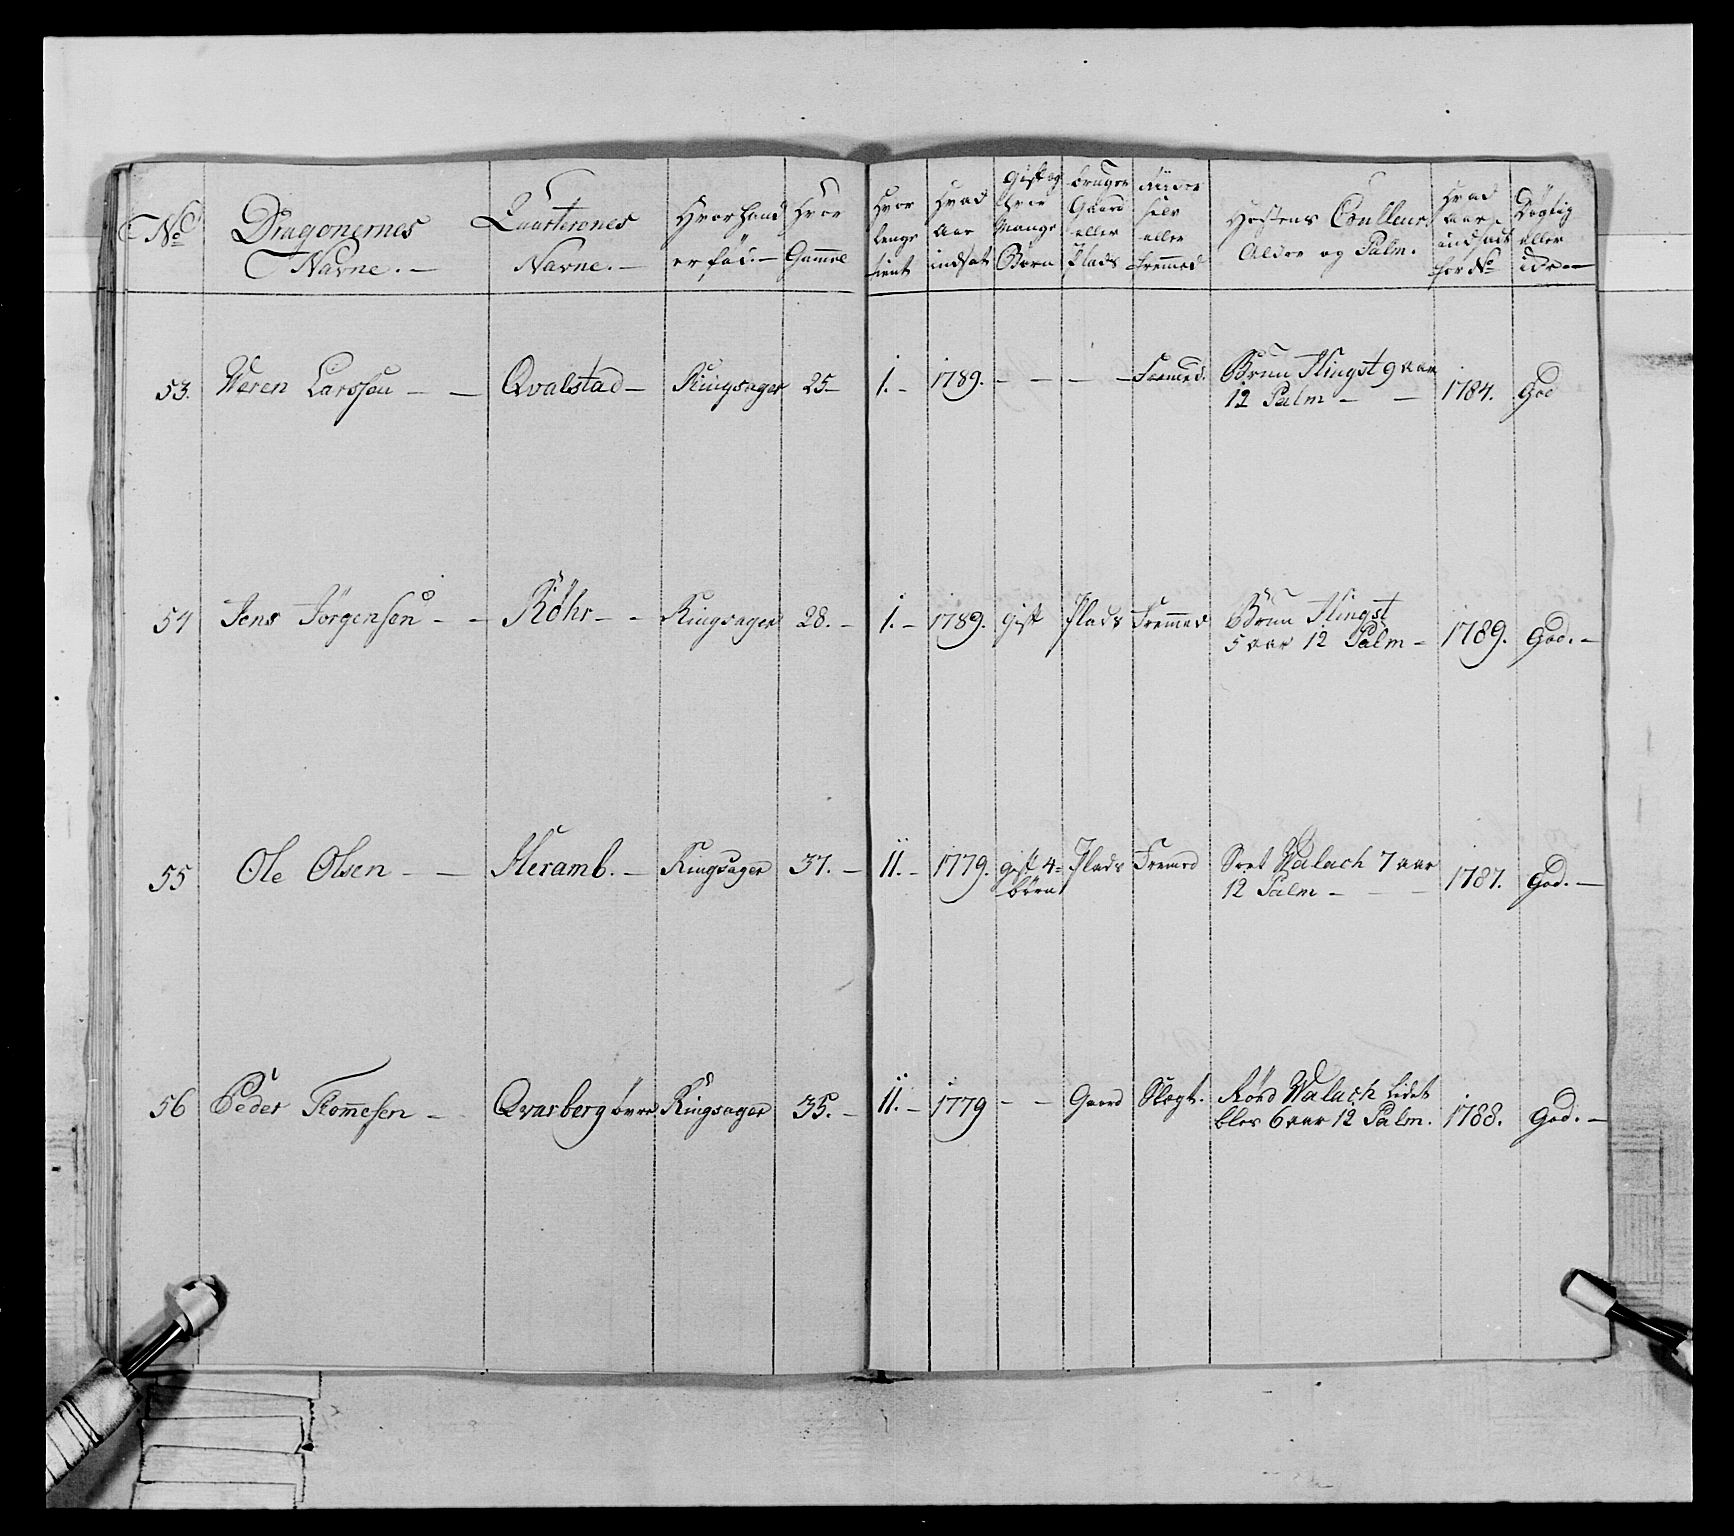 No
Dragonernes
Navne. —
Quarterenes
Navne. —
Hvor hand
er fød. —
Hvor
Gammel
Hvor
lenge
tient
Hvad
Aar
indsat
Gift og
hvor
Mange
Børn
bruger
Gaard
eller
Plads
Riider
selv
eller
Fremmed
Hæstens Coulleur
Alder og Palm.
Hvad
aar
indsadt
for No
Døgtig
eller
53. Larssen — — Qvalstad — Ringsager 25 — 1. — 1789. — — — — Fremed. Brun Hingst 9 aar
12 Palm — — 1784. God
54 Jens Jörgensen — — Röhr — — Ringsager 28. — 1. — 1789. Gift Plads Fremmed Brun Hingst
5 aar 12 Palm — 1789. God. —
55 Ole Olsen — — Heramb. — Ringsager 37. — 11. — 1779. Gift 4 Plads Fremed Sort Walach 7 aar
börn 12 Palm — — — 1787. God. —
56 Peder Tommesen — Qvarberg övre Ringsager 35. — 11. — 1779 — — Gaard Slegt. Rød Walach lidet
bles 6 aar 12 Palm. 1788. God. —